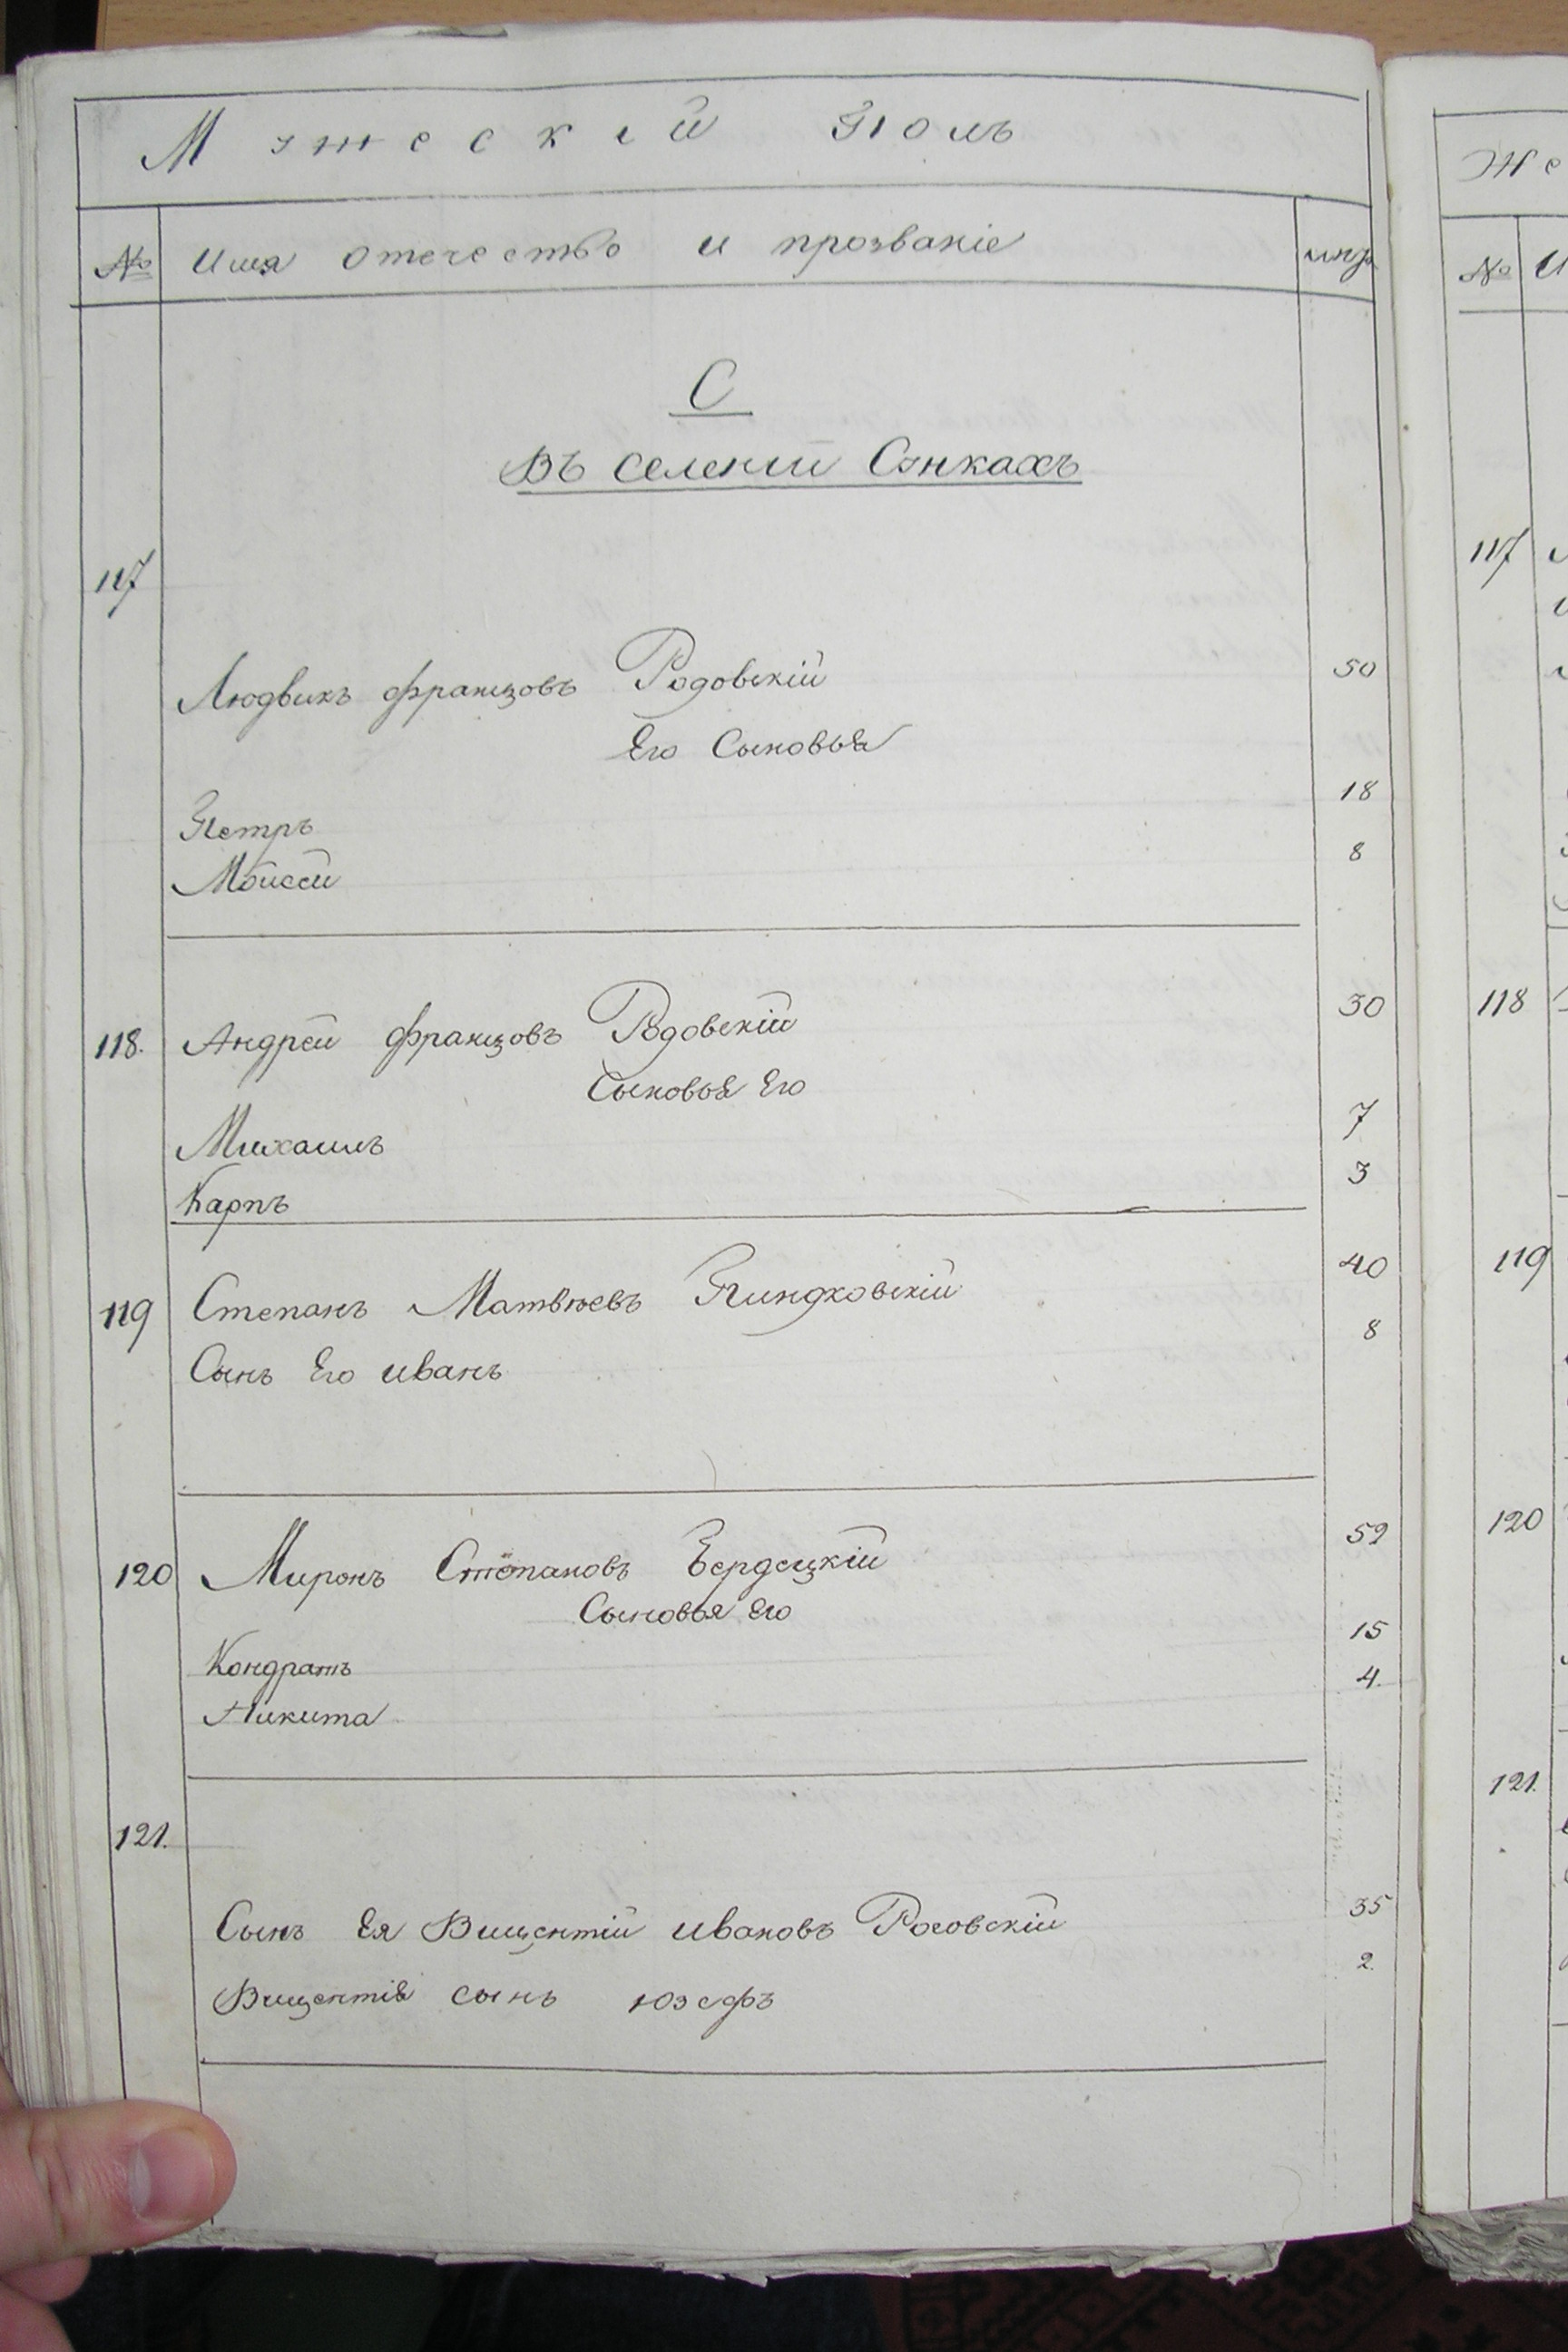 Мужескій Полъ
№ Имя отечество и прозваніе
С
Въ селеніи Сункахъ
117
Людвикъ францовъ Родовскій 50
Его Сыновья
Петръ 18
Мойсей 8
118. Андрей францовъ Родовскій 30
Сыновья Его
Михаилъ 7
Карпъ 3
119 Степанъ Матвѣевъ Пиндковскій 40
Сынъ Его иванъ 8
120 Миронъ Степановъ Бердецкій 52
Сыновья Его
Кондратъ 15
Никита 4.
121.
Сынъ Ея Вицентій ивановъ Роговскій 35
Вицентія сынъ юзефъ 2.
Же
№ И
117
118
119
120
121.